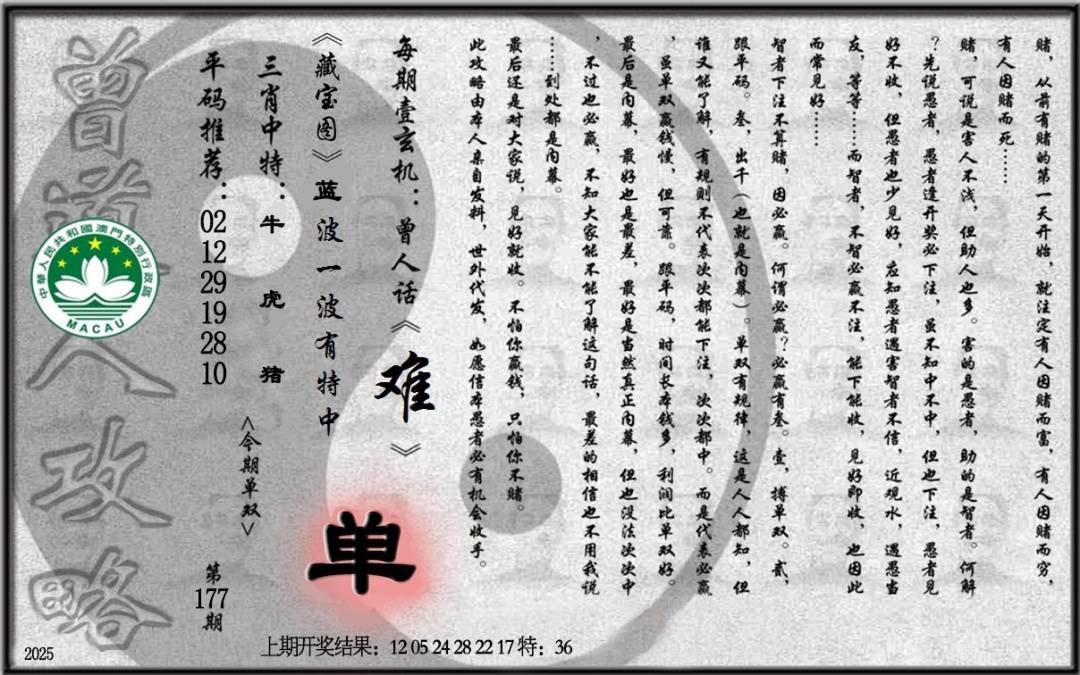 赌，从前有赌的第一天开始，就注定有人因赌而富，有人因赌而穷，
有人因赌而死……
赌，可说是害人不浅，但助人也多。害的是愚者，助的是智者。何解
？先说愚者，愚者逢开奖必下注，虽不知中不中，但也下注，愚者见
好不收，但愚者也少见好，应知愚者遇害智者不信，近观水，遇愚当
友，等等……而智者，不智必赢不注，能下能收，见好即收，也因此
而常见好……
智者下注不算赌，因必赢。何谓必赢？必赢有叁。壹，搏单双。贰，
跟平码。叁，出千（也就是内幕）。单双有规律，这是人人都知，但
谁又能了解，有规则不代表次次都能下注，次次都中。而是代表必赢
，虽单双赢钱慢，但可靠。跟平码，时间长本钱多，利润比单双好。
最后是内幕，最好也是最差，最好是当然真正内幕，但也没法次次中
，不过也必赢，不知大家能不能了解这句话，最差的相信也不用我说
……到处都是内幕。
最后还是对大家说，见好就收。不怕你赢钱，只怕你不赌。
此攻略由本人亲自发料，世外代发，如愿信本愚者必有机会收手。
每期壹玄机：曾人话《难》
《藏宝图》蓝波一波有特中
三肖中特：牛 虎 猪
平码推荐：02 12 29 19 28 10
<今期单双>
单
第177期
曾道人攻略
中華人民共和國澳門特別行政區
MACAU
上期开奖结果：12 05 24 28 22 17 特：36
2025